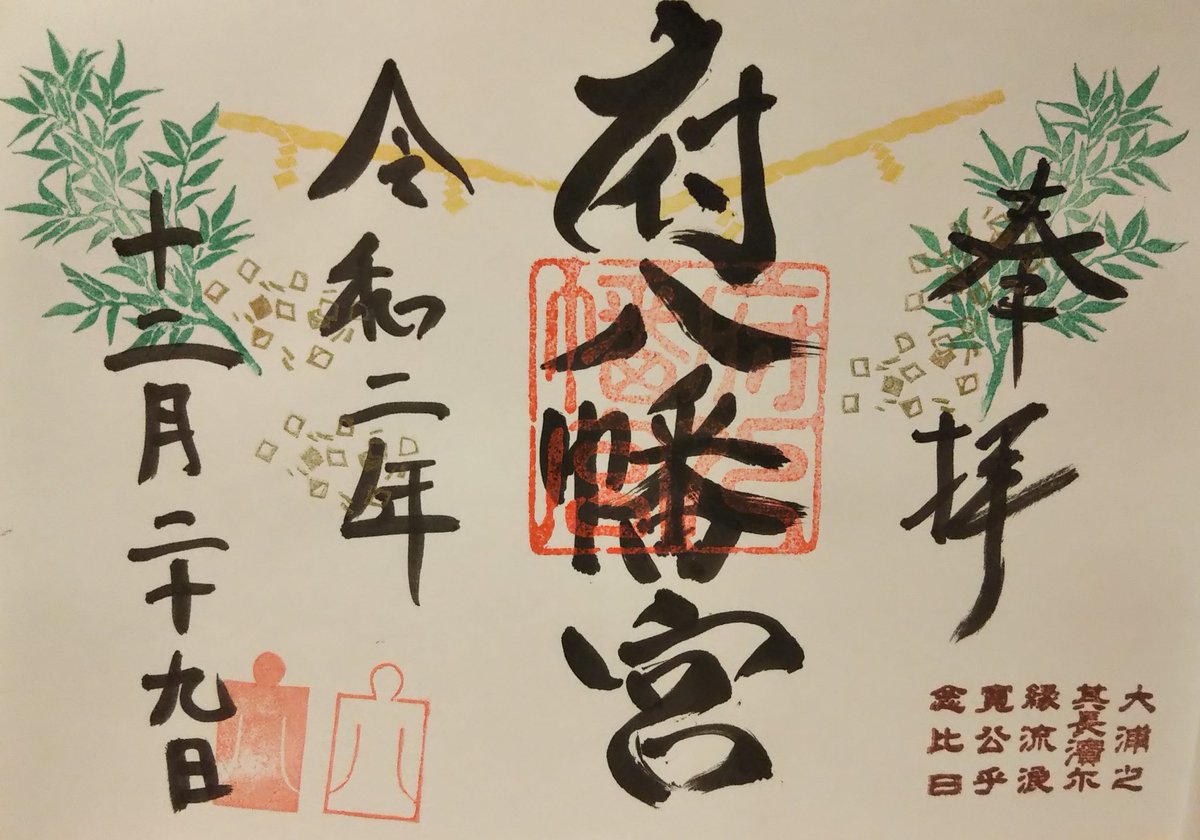 奉拝
大浦之
其長濱尓
縁流浪
寛公乎
念比日
府八幡宮
府八
幡宮
令和二年
十二月二十九日